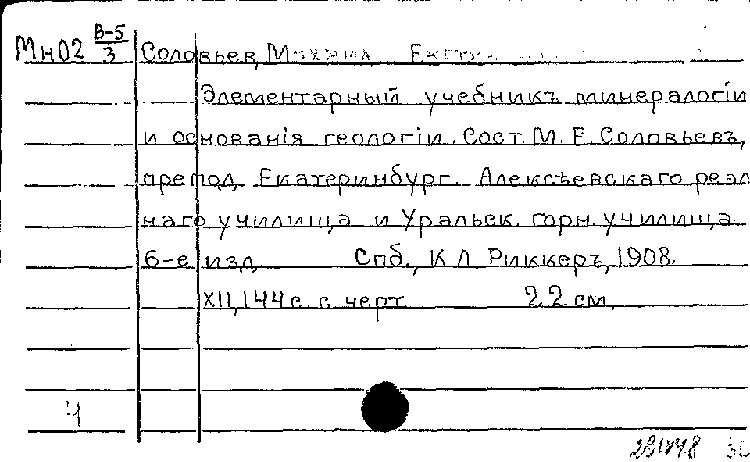 МнО2 В-5/3 Соловьев,
Элементарный учебникъ минералогіи
и основанія геологіи. Сост. М. Е. Соловьевъ,
препод. Екатеринбург. Алексѣевскаго реал
наго училища и Уральск. горн. училища
6-е изд. Спб., К Л Риккеръ, 1908.
XII, 144 с. с черт 22 см.
4